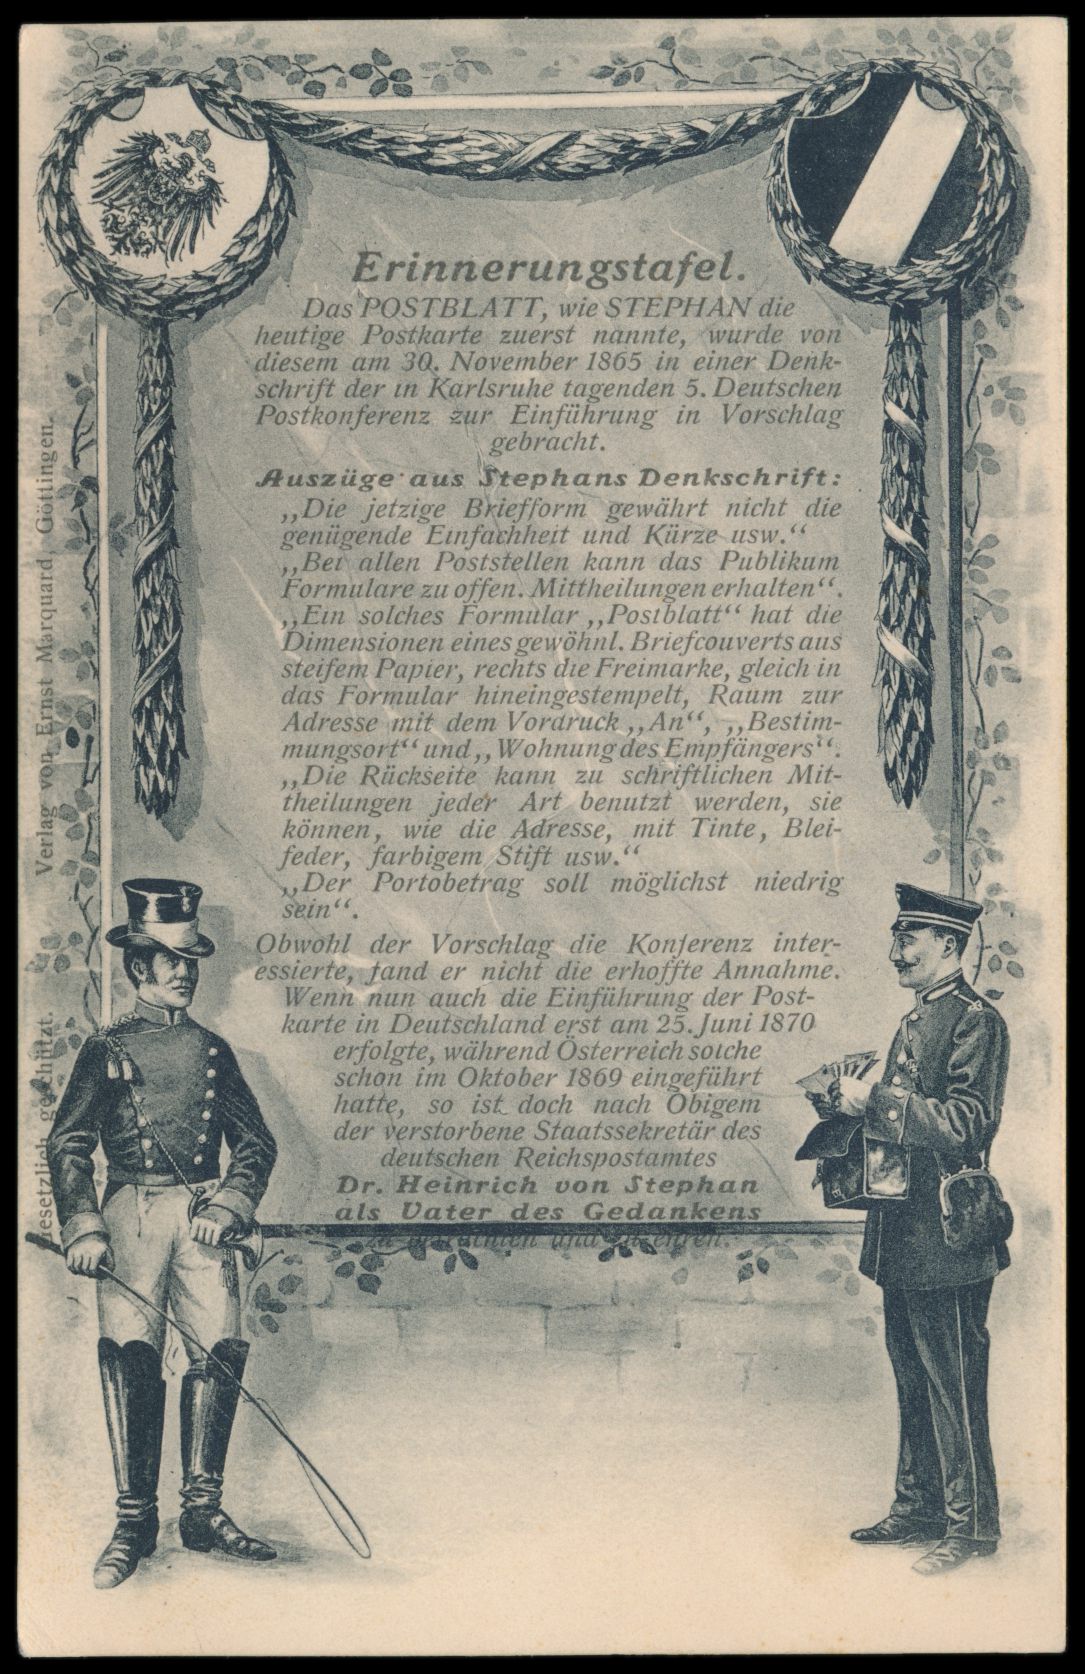 Erinnerungstafel.
Das POSTBLATT, wie STEPHAN die
heutige Postkarte zuerst nannte, wurde von
diesem am 30. November 1865 in einer Denk-
schrift der in Karlsruhe tagenden 5. Deutschen
Postkonferenz zur Einführung in Vorschlag
gebracht.
Auszüge aus Stephans Denkschrift:
„Die jetzige Briefform gewährt nicht die
genügende Einfachheit und Kürze usw.“
„Bei allen Poststellen kann das Publikum
Formulare zu offen. Mittheilungen erhalten“.
„Ein solches Formular „Postblatt“ hat die
Dimensionen eines gewöhnl. Briefcouverts aus
steifem Papier, rechts die Freimarke, gleich in
das Formular hineingestempelt, Raum zur
Adresse mit dem Vordruck „An“, „Bestim-
mungsort“ und „Wohnung des Empfängers“.
„Die Rückseite kann zu schriftlichen Mit-
theilungen jeder Art benutzt werden, sie
können, wie die Adresse, mit Tinte, Blei-
feder, farbigem Stift usw.“
„Der Portobetrag soll möglichst niedrig
sein“.
Obwohl der Vorschlag die Konferenz inter-
essierte, fand er nicht die erhoffte Annahme.
Wenn nun auch die Einführung der Post-
karte in Deutschland erst am 25. Juni 1870
erfolgte, während Österreich solche
schon im Oktober 1869 eingeführt
hatte, so ist doch nach Obigem
der verstorbene Staatssekretär des
deutschen Reichspostamtes
Dr. Heinrich von Stephan
als Vater des Gedankens
zu und zu ehren.
Gesetzlich geschützt. Verlag von Ernst Marquard, Göttingen.